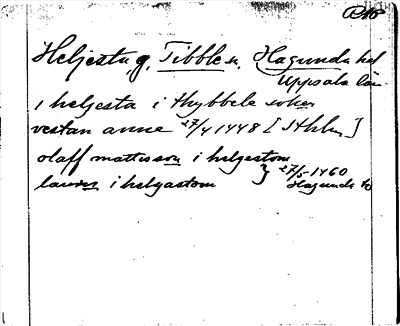 Heljesta, g. Tibble sn, Hagunda hd
Uppsala län
i heljesta i thybbele soken
vestan anne 27/4 1448 [Sthlm]
olaff mattisson i helgestom
i helgastom } 27/5-1460
Hagunda